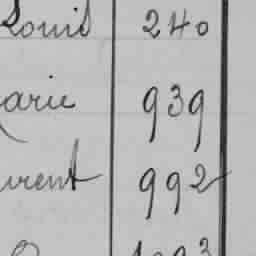 Louis 240
arie 939
urent 992